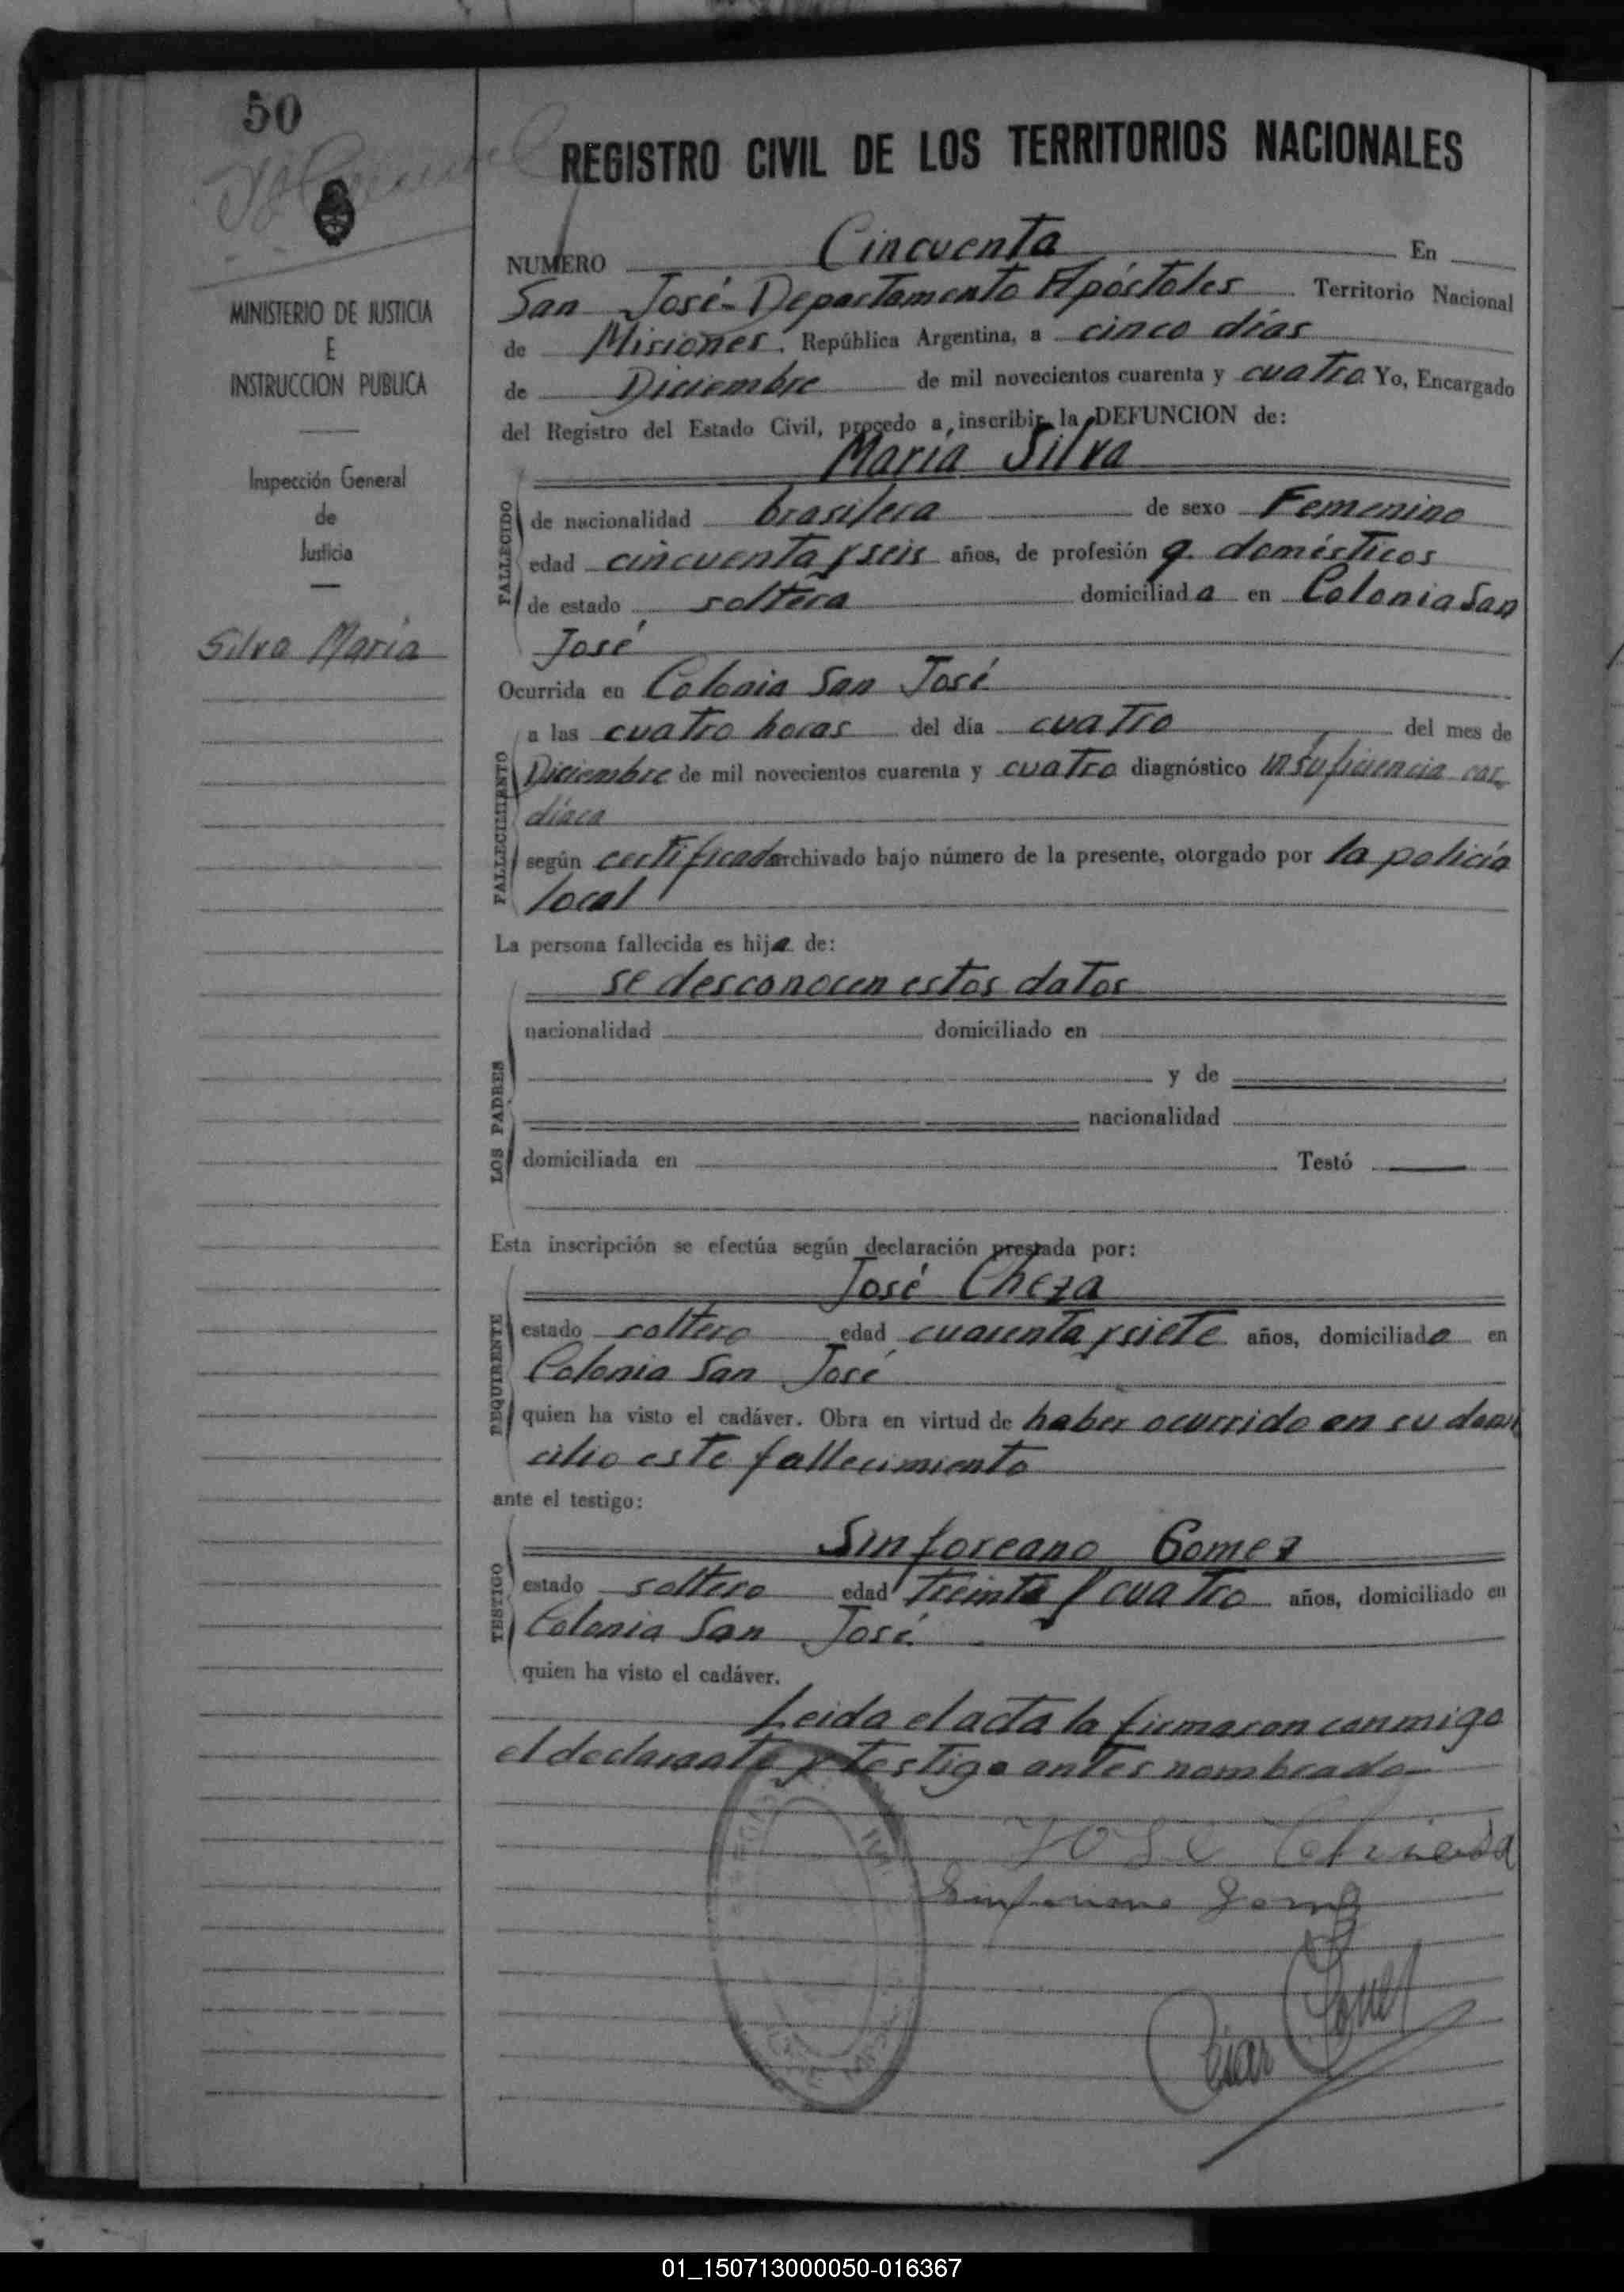 50
REGISTRO CIVIL DE LOS TERRITORIOS NACIONALES
MINISTERIO DE JUSTICIA
E
INSTRUCCION PUBLICA
Inspección General
de
Justicia
Silva María
NUMERO Cincuenta En
San José - Departamento Apóstoles Territorio Nacional
de Misiones. República Argentina, a cinco días
de Diciembre de mil novecientos cuarenta y cuatro Yo, Encargado
del Registro del Estado Civil, procedo a inscribir la DEFUNCION de:
María Silva
FALLECIDO
de nacionalidad brasilera de sexo Femenino
edad cincuenta y seis años, de profesión q. domésticos
de estado soltera domiciliada en Colonia San
José
Ocurrida en Colonia San José
FALLECIMIENTO
a las cuatro horas del día cuatro del mes de
Diciembre de mil novecientos cuarenta y cuatro diagnóstico insuficiencia car
díaca
según certificado archivado bajo número de la presente, otorgado por la policía
local
La persona fallecida es hija de:
LOS PADRES
se desconocen estos datos
nacionalidad domiciliado en
y de
nacionalidad
domiciliada en Testó
Esta inscripción se efectúa según declaración prestada por:
REQUIRENTE
José Cheza
estado soltero edad cuarenta y siete años, domiciliado en
Colonia San José
quien ha visto el cadáver. Obra en virtud de haber ocurrido en su domi
cilio este fallecimiento
ante el testigo:
TESTIGO
Sinforeano Gomez
estado soltero edad treinta y cuatro años, domiciliado en
Colonia San José
quien ha visto el cadáver.
Leida el acta la firmaron conmigo
el declarante y testigo antes nombrado
José
Sinforiano Gomez
César
01_150713000050-016367